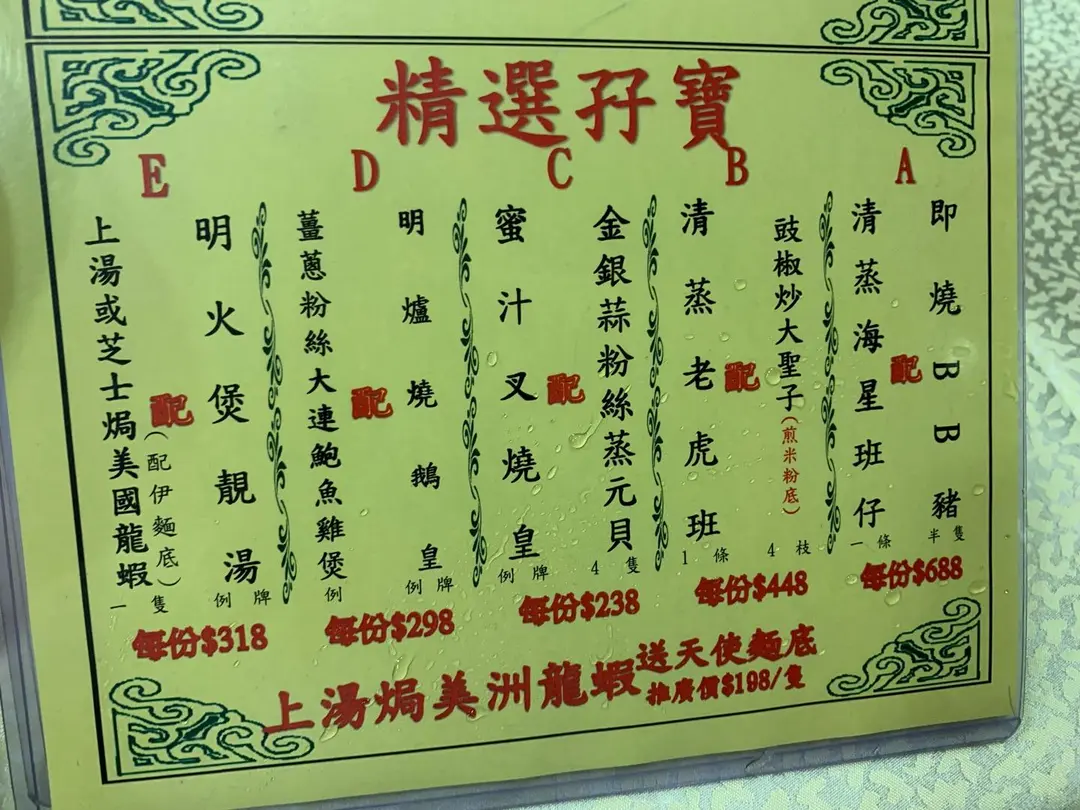 精選孖寶
A
即燒BB豬
半隻
配
清蒸海星班仔
一條
每份$688
B
豉椒炒大聖子(煎米粉底)
4枝
配
清蒸老虎班
1條
每份$448
C
金銀蒜粉絲蒸元貝
4隻
配
蜜汁叉燒皇
例牌
每份$238
D
明爐燒鵝皇
例牌
配
薑蔥粉絲大連鮑魚雞煲
例
每份$298
E
明火煲靚湯
例牌
配
上湯或芝士焗美國龍蝦
(配伊麵底)
一隻
每份$318
上湯焗美洲龍蝦送天使麵底
推廣價$198/隻